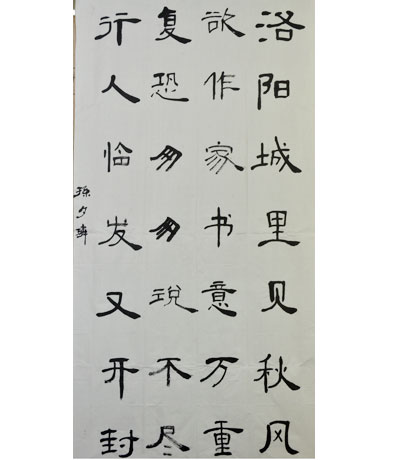 洛阳城里见秋风
欲作家书意万重
复恐匆匆说不尽
行人临发又开封